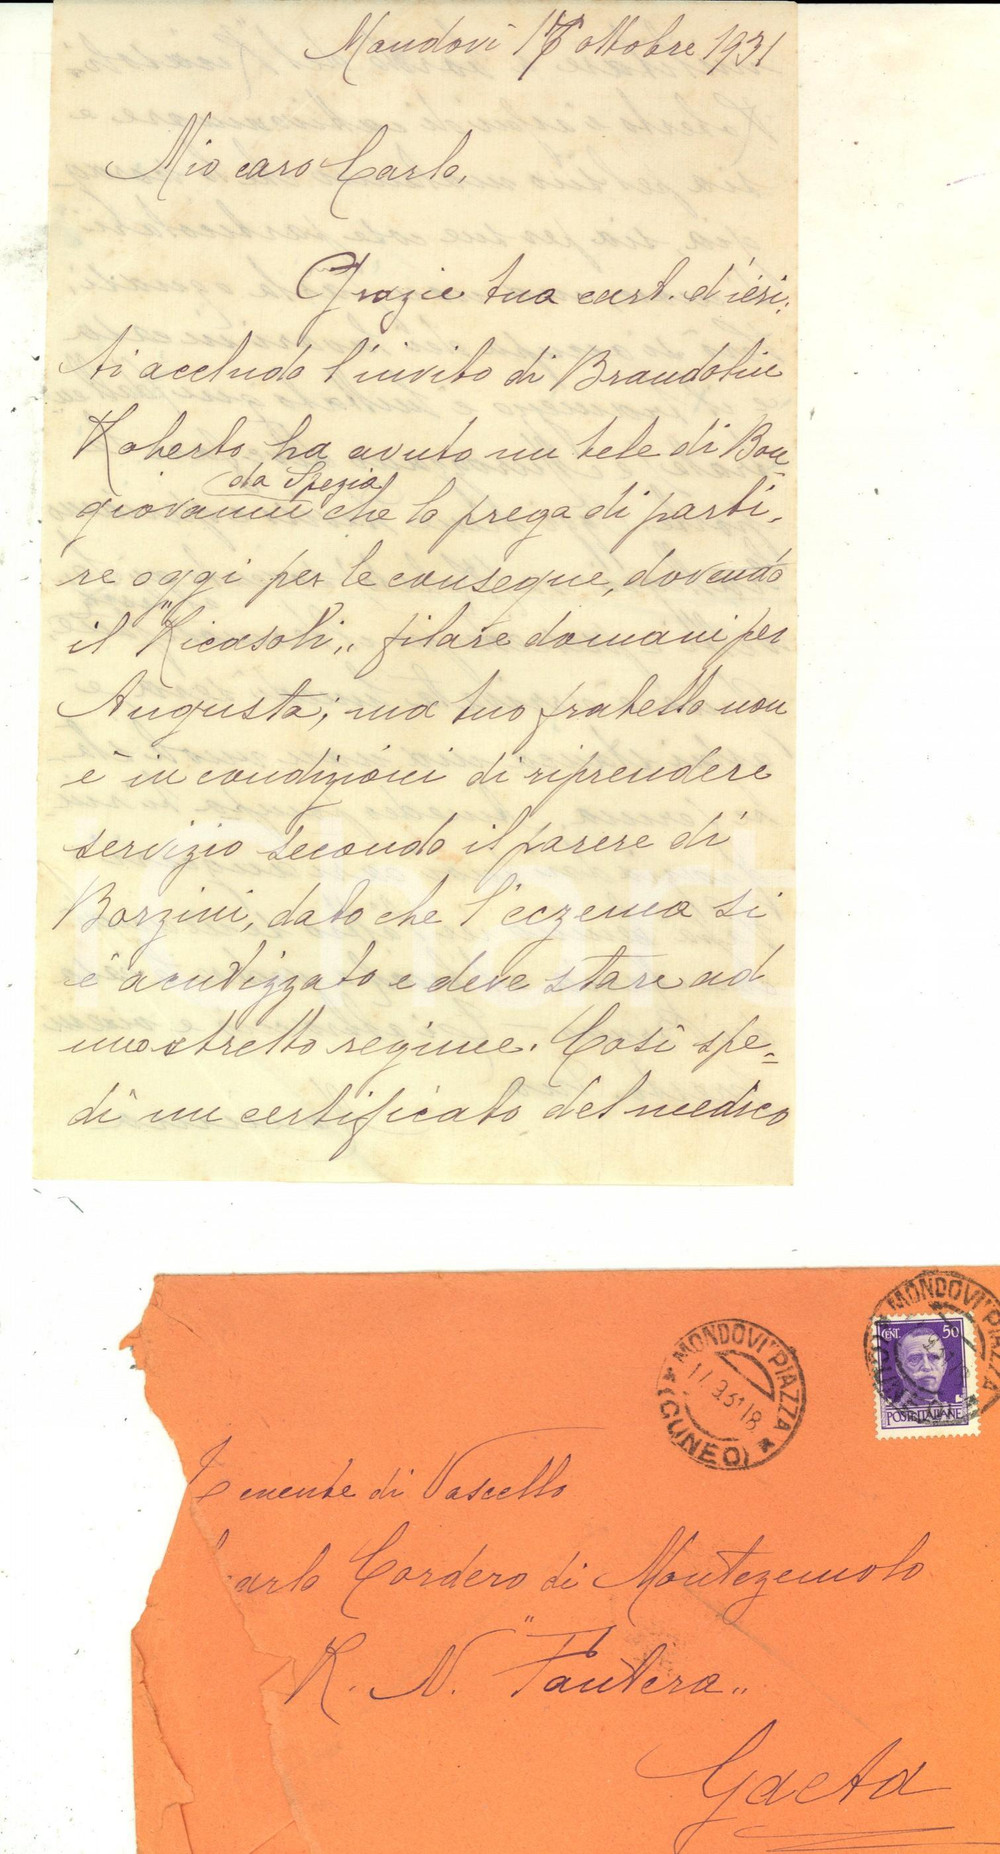 Mondovì 17 ottobre 1931
Mio caro Carlo,
Grazie tua cart. d'ieri;
ti accludo l'invito di Brandolin
Roberto ha avuto un tele di Bon
da Spezia
giovanni che lo prega di parti,
re oggi per le consegne, dovendo
il "Ricasoli„ filare domani per
Augusta; ma tuo fratello non
è in condizioni di riprendere
servizio secondo il parere di
Borzini, dato che l'eczema si
è acutizzato e deve stare ad
uno stretto regime. Così spe=
dì un certificato del medico
MONDOVI' PIAZZA
(CUNEO)
MONDOVI' PIAZZA
CENT. 50
POSTE ITALIANE
Tenente di Vascello
arlo Cordero di Montezemolo
R. N. "Pantera„
Gaeta